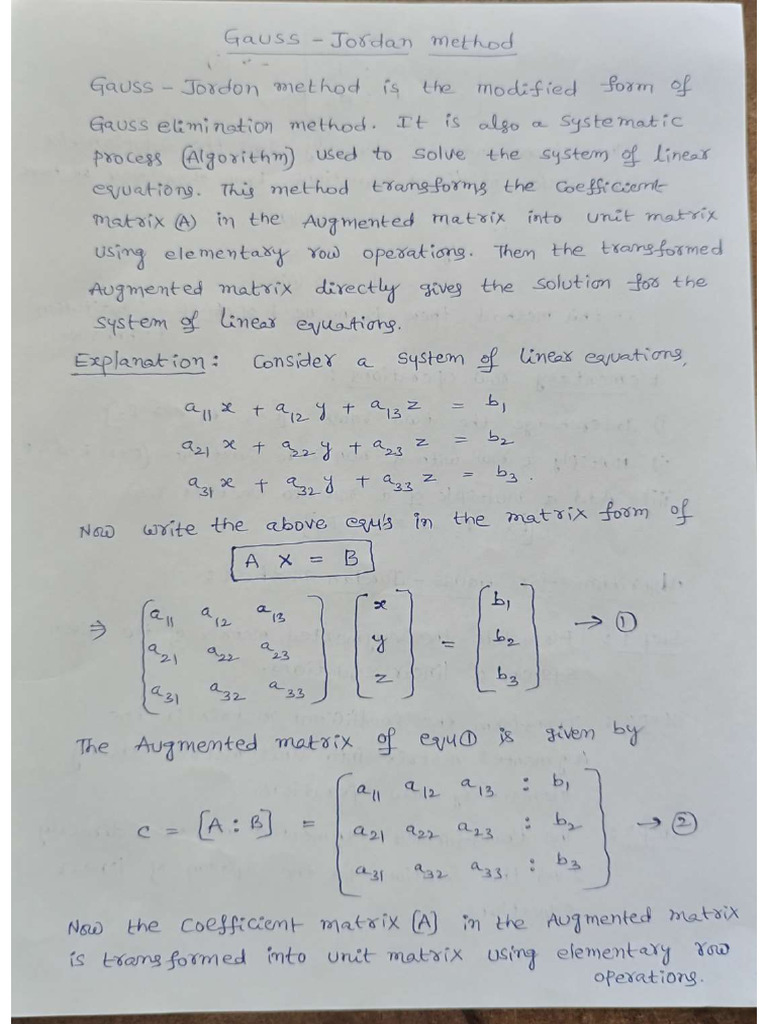 Gauss - Jordan method
Gauss - Jordon method is the modified form of
Gauss elimination method. It is also a systematic
process (Algorithm) used to solve the system of linear
equations. This method transforms the coefficient
matrix (A) in the Augmented matrix into unit matrix
using elementary row operations. Then the transformed
Augmented matrix directly gives the solution for the
system of linear equations.
Explanation: Consider a system of linear equations,
a₁₁x + a₁₂y + a₁₃z = b₁
a₂₁x + a₂₂y + a₂₃z = b₂
a₃₁x + a₃₂y + a₃₃z = b₃.
Now write the above equ's in the matrix form of
A X = B
⇒ [a₁₁ a₁₂ a₁₃] [x] [b₁]
[a₂₁ a₂₂ a₂₃] [y] = [b₂] → ①
[a₃₁ a₃₂ a₃₃] [z] [b₃]
The Augmented matrix of equ① is given by
[a₁₁ a₁₂ a₁₃ : b₁]
C = [A : B] = [a₂₁ a₂₂ a₂₃ : b₂] → ②
[a₃₁ a₃₂ a₃₃ : b₃]
Now the coefficient matrix [A] in the Augmented matrix
is transformed into unit matrix using elementary row
operations.